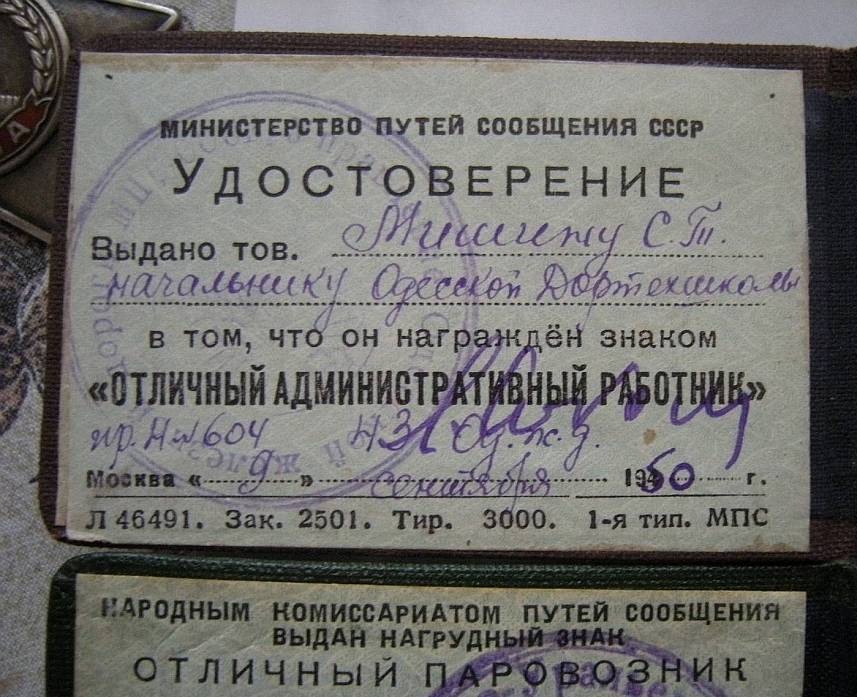 МИНИСТЕРСТВО ПУТЕЙ СООБЩЕНИЯ СССР
УДОСТОВЕРЕНИЕ
Выдано тов. С. Т.
начальнику Одесской Дортехшколы
в том, что он награждён знаком
«ОТЛИЧНЫЙ АДМИНИСТРАТИВНЫЙ РАБОТНИК»
пр. Н № 604 Од. ж. д.
Москва « 9 » сентября 1950 г.
Л 46491. Зак. 2501. Тир. 3000. 1-я тип. МПС
НАРОДНЫМ КОМИССАРИАТОМ ПУТЕЙ СООБЩЕНИЯ
ВЫДАН НАГРУДНЫЙ ЗНАК
ОТЛИЧНЫЙ ПАРОВОЗНИК